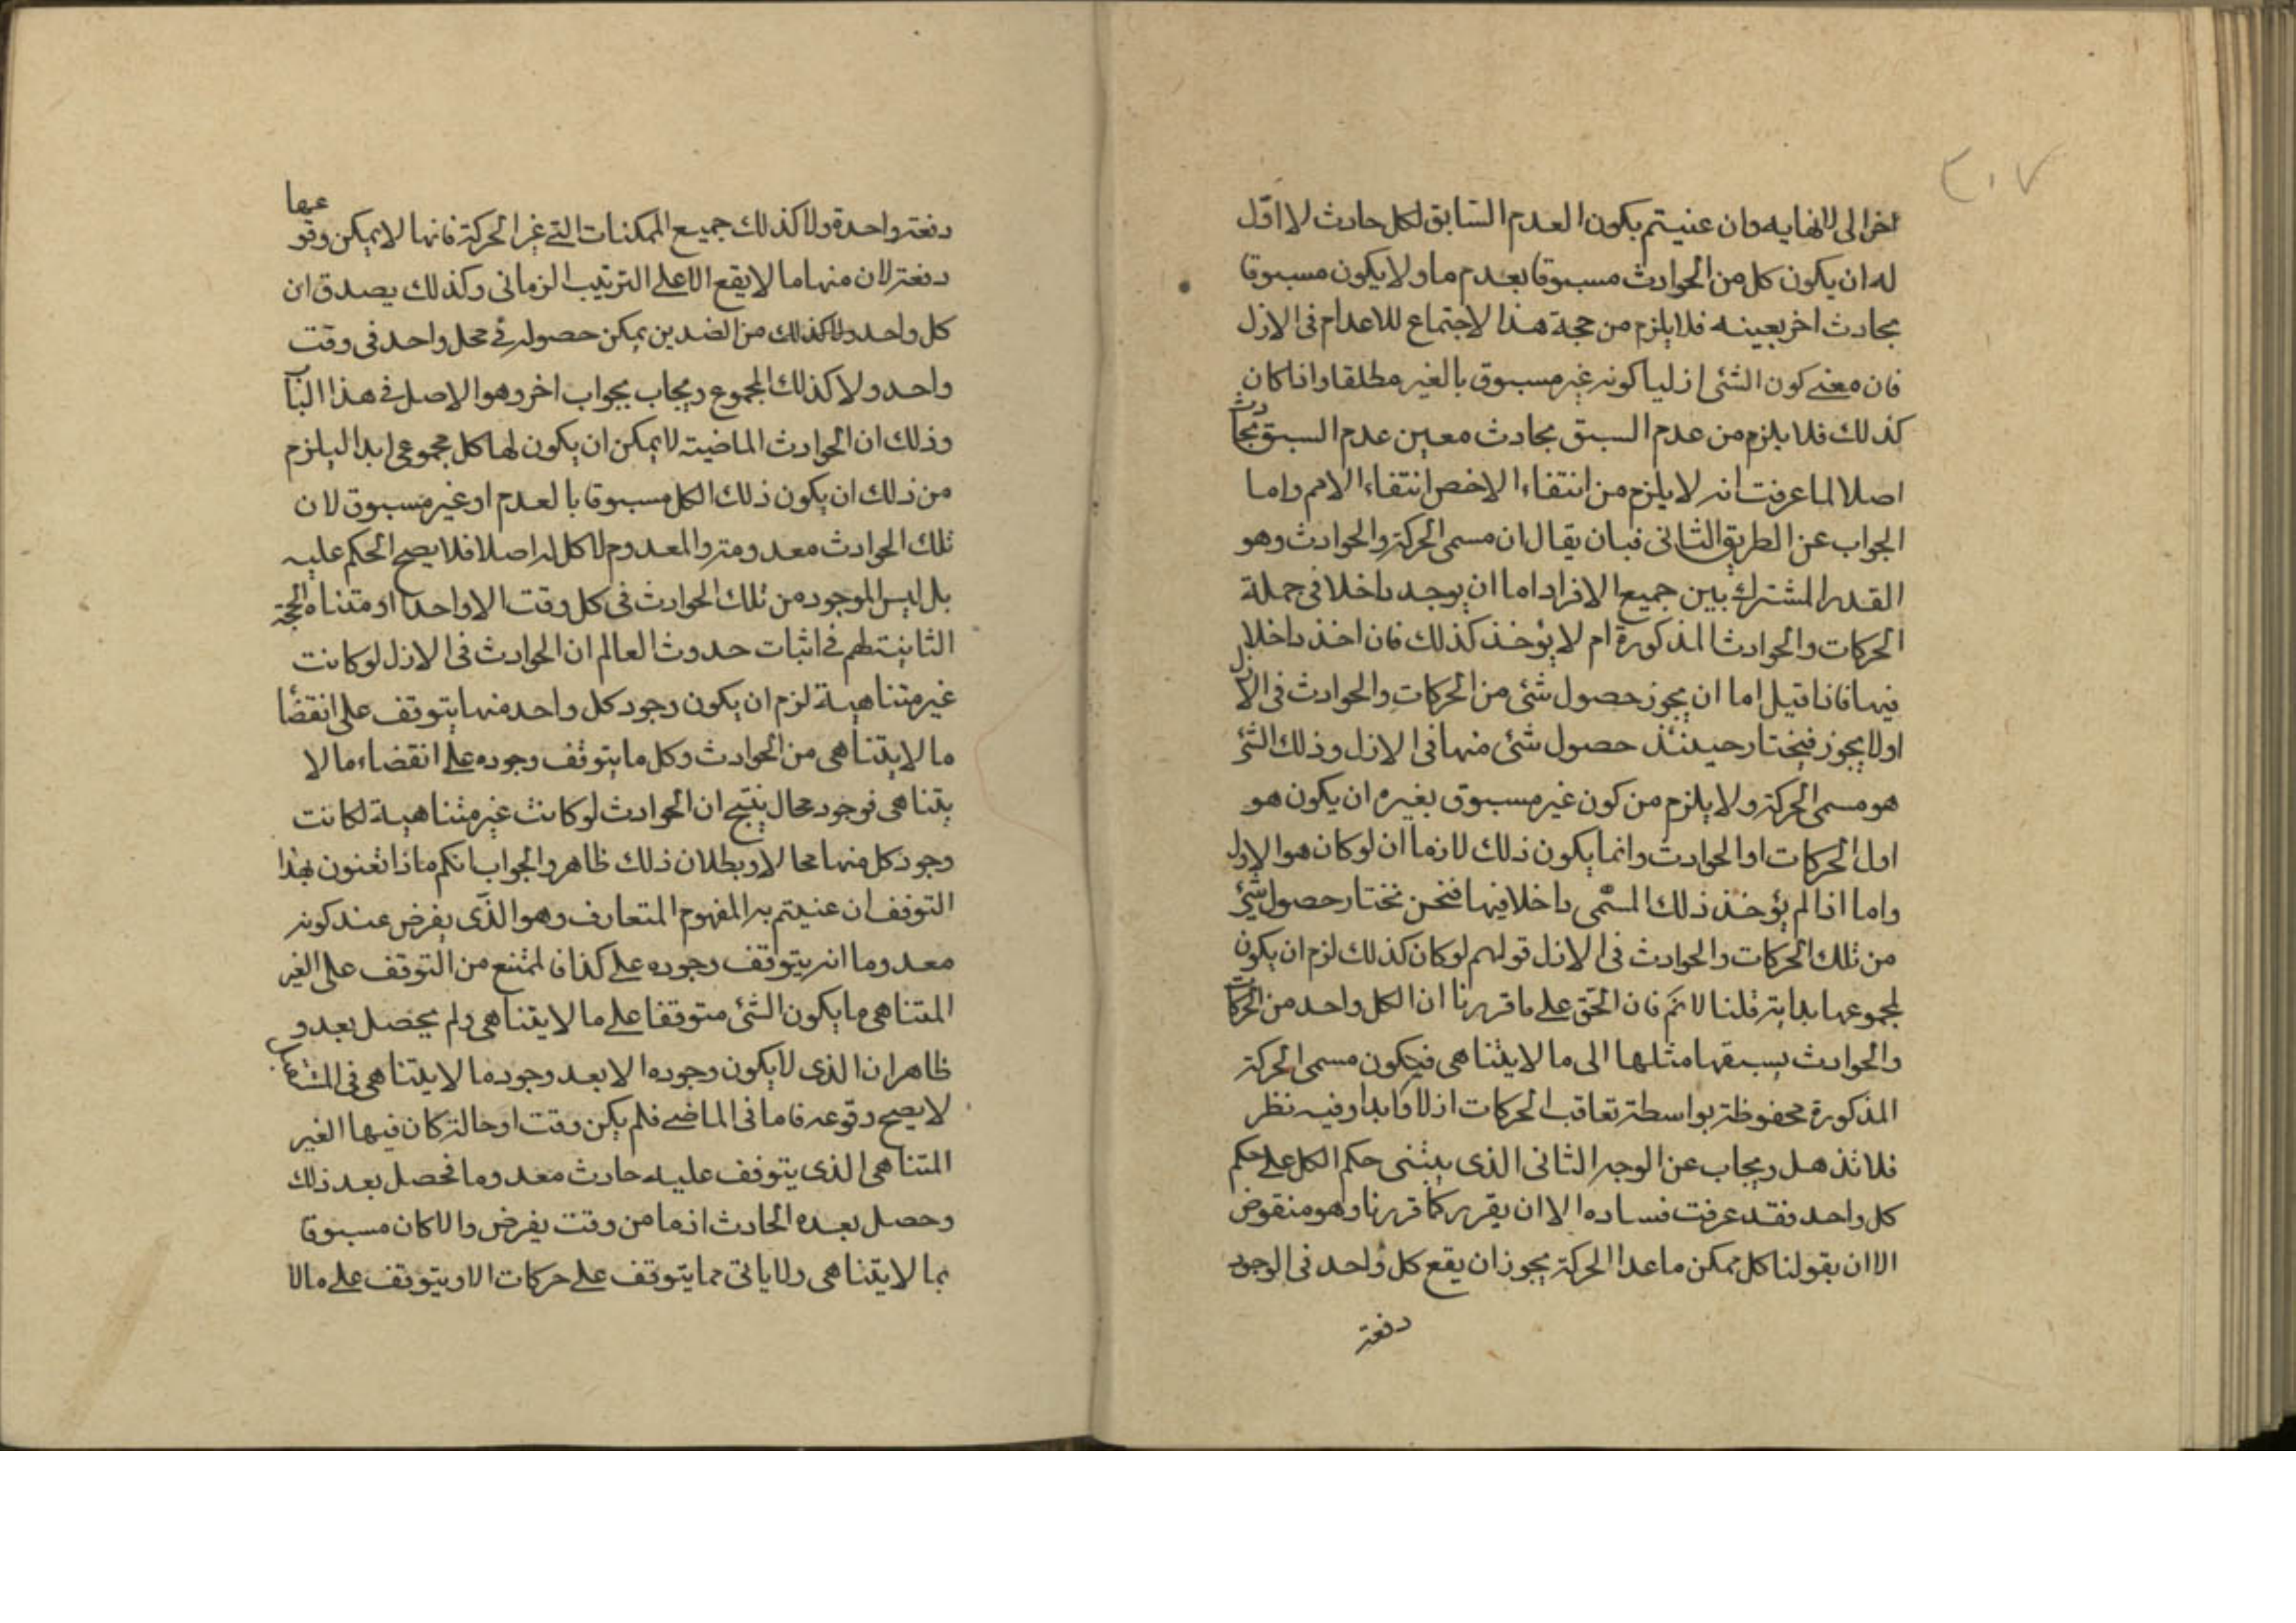 ٣٠٧
اخر الى لا نهايه وان عنيتم بكون العدم السابق لكل حادث لا اول
له ان يكون كل من الحوادث مسبوقا بعدم ما ولا يكون مسبوقا
بحادث اخر بعينه فلا يلزم من حجة هذا الاجتماع للاعدام فى الازل
فان معنى كون الشئ ازليا كونه غير مسبوق بالغير مطلقا واذا كان
كذلك فلا يلزم من عدم السبق بحادث معين عدم السبق بحادث
اصلا لما عرفت انه لا يلزم من انتفاء الاخص انتفاء الاعم واما
الجواب عن الطريق الثانى فبان يقال ان مسمى الحركة والحوادث وهو
القدر المشترك بين جميع الافراد اما ان يوجد داخلا فى جملة
الحركات والحوادث المذكورة ام لا يؤخذ كذلك فان اخذ داخلا
فيها فاذا قيل اما ان يجوز حصول شئ من الحركات والحوادث فى الازل
اولا يجوز فيختار حينئذ حصول شئ منها فى الازل وذلك الشئ
هو مسمى الحركة ولا يلزم من كون غير مسبوق بغيره ان يكون هو
اول الحركات او الحوادث وانما يكون ذلك لازما ان لو كان هو الاول
واما اذا لم يؤخذ ذلك المسمى داخلا فيها فنحن نختار حصول شئ
من تلك الحركات والحوادث فى الازل قولهم لو كان كذلك لزم ان يكون
لمجموعها بداية قلنا لا نم فان الحق على ما قررنا ان الكل واحد من الحركات
والحوادث يسبقها مثلها الى ما لا يتناهى فيكون مسمى الحركة
المذكورة محفوظة بواسطة تعاقب الحركات ازلا وابدا وفيه نظر
فلا تذهل ويجاب عن الوجه الثانى الذى يبتنى حكم الكل على حكم
كل واحد فقد عرفت فساده الا ان يقرر كما قررنا وهو منقوض
الا ان بقولنا كل ممكن ما عدا الحركة يجوز ان يقع كل واحد فى الوجود
دفعة
دفعة واحدة ولا كذلك جميع الممكنات التى غير الحركة فانها لا يمكن وقوعها
دفعة لان منها ما لا يقع الا على الترتيب الزمانى وكذلك يصدق ان
كل واحد ولا كذلك من الضدين يمكن حصوله فى محل واحد فى وقت
واحد ولا كذلك المجموع ويجاب بجواب اخر وهو الاصل فى هذا الباب
وذلك ان الحوادث الماضية لا يمكن ان يكون لها كل مجموعى ابدا ليلزم
من ذلك ان يكون ذلك الكل مسبوقا بالعدم او غير مسبوق لان
تلك الحوادث معدومة والمعدوم لا كل له اصلا فلا يصح الحكم عليه
بل ليس الموجود من تلك الحوادث فى كل وقت الا واحدا او متناه الحجة
الثانية لهم فى اثبات حدوث العالم ان الحوادث فى الازل لو كانت
غير متناهية لزم ان يكون وجود كل واحد منها يتوقف على انقضا
ما لا يتناهى من الحوادث وكل ما يتوقف وجوده على انقضاء ما لا
يتناهى فوجود محال ينتج ان الحوادث لو كانت غير متناهية لكانت
وجود كل منها محالا وبطلان ذلك ظاهر والجواب انكم ماذا تعنون بهذا
التوقف ان عنيتم به المفهوم المتعارف وهو الذى يفرض عند كونه
معدوما انه يتوقف وجوده على كذا فالممتنع من التوقف على الغير
المتناهى ما يكون الشئ متوقفا على ما لا يتناهى ولم يحصل بعد و
ظاهر ان الذى لا يكون وجوده الا بعد وجود ما لا يتناهى فى المستقبل
لا يصح وقوعه فاما فى الماضى فلم يكن وقت او حالة كان فيها الغير
المتناهى الذى يتوقف عليه حادث معدوما فحصل بعد ذلك
وحصل بعده الحادث اذ ما من وقت يفرض والا كان مسبوقا
بما لا يتناهى ولا ياتى مما يتوقف على حركات الا ويتوقف على ما لا